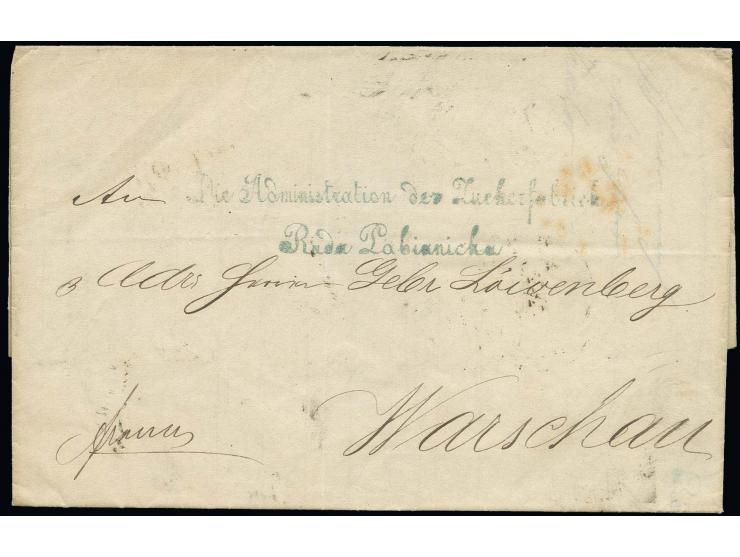 An Die Administration der Zuckerfabrick
Ruda Pabianicka
Adr: Herrn Gebr Löwenberg
Warschau
franco